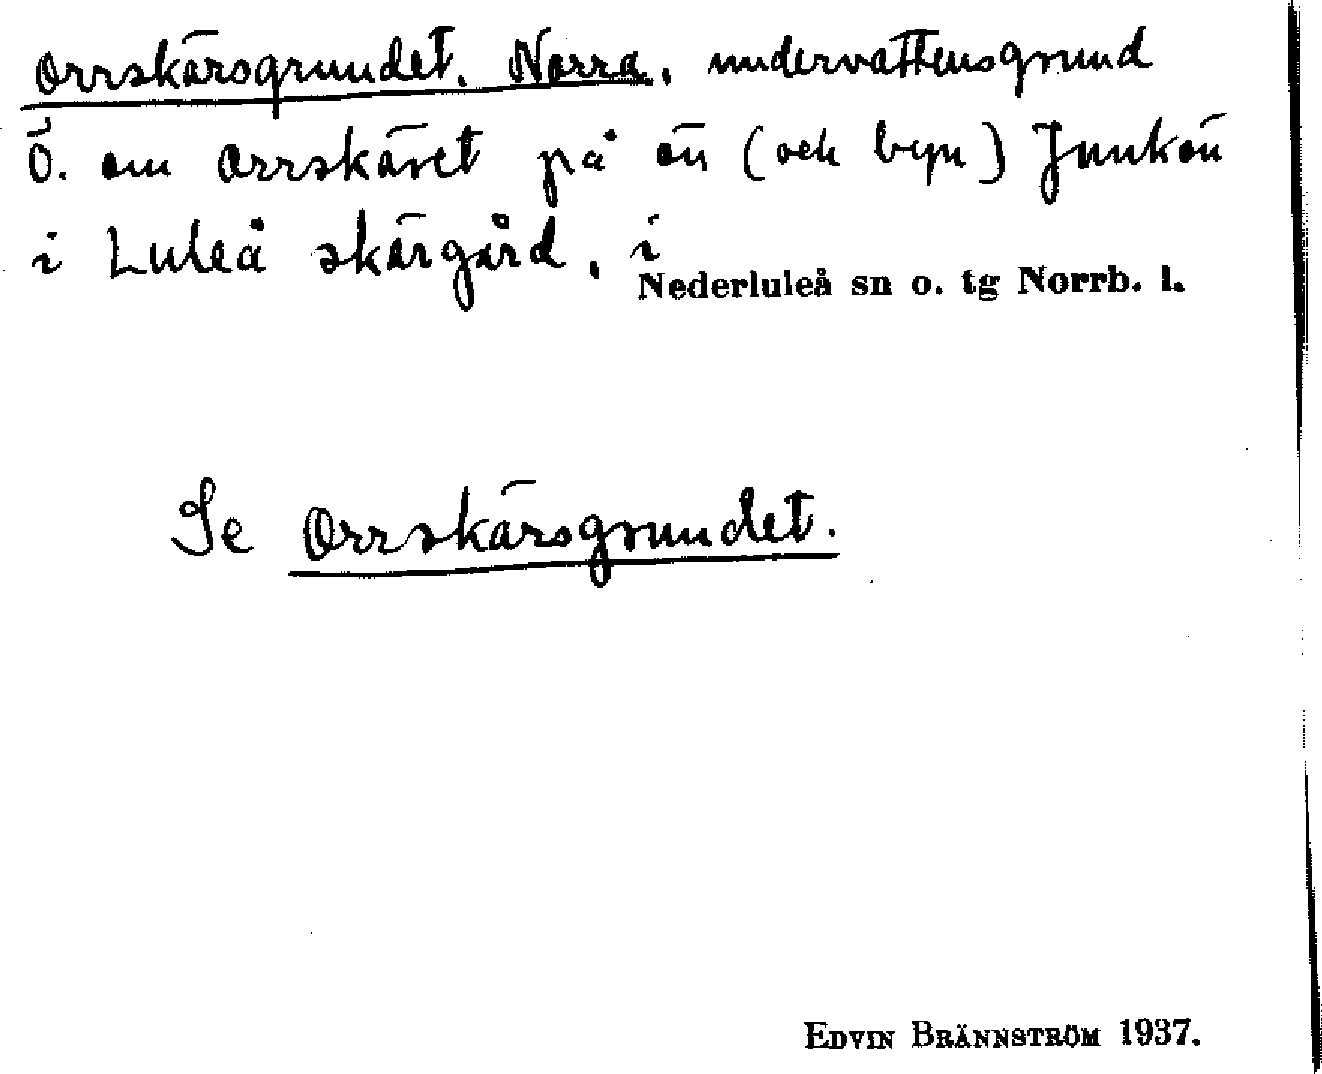 Orrskärsgrundet, Norra, undervattensgrund
Ö. om Orrskäret på ön (och byn) Junkön
i Luleå skärgård, i Nederluleå sn o. tg Norrb. l.
Se Orrskärsgrundet.
EDVIN BRÄNNSTRÖM 1937.